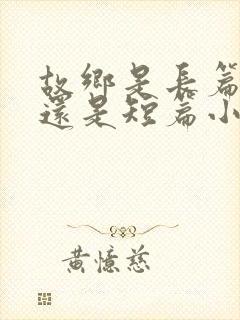 故鄉是長篇
還是短篇小
黃憶慈